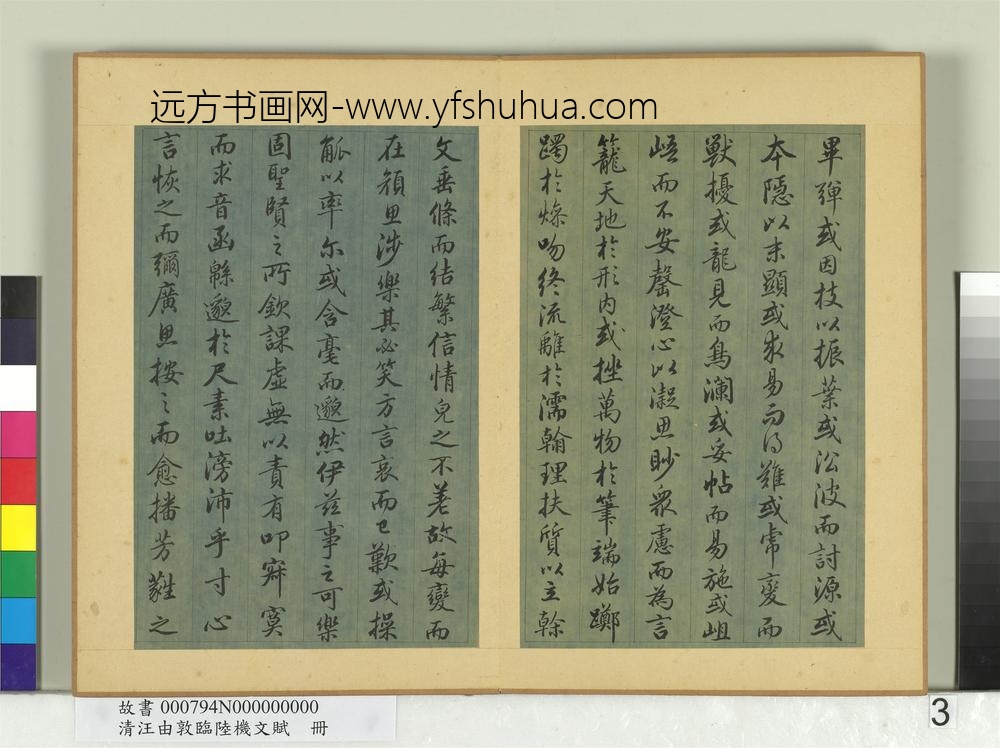 远方书画网-www.yfshuhua.com
畢殫或因枝以振葉或沿波而討源或
本隱以末顯或求易而得難或常變而
獸擾或龍見而鳥瀾或妥帖而易施或岨
峿而不安罄澄心以凝思眇衆慮而為言
籠天地於形內或挫萬物於筆端始躑
躅於燥吻終流離於濡翰理扶質以立幹
文垂條而結繁信情皃之不差故每變而
在顏思涉樂其必笑方言哀而已歎或操
觚以率尔或含毫而邈然伊茲事之可樂
固聖賢之所欽課虛無以責有叩寂寞
而求音函緜邈於尺素吐滂沛乎寸心
言恢之而彌廣思按之而愈播芳蕤之
故書 000794N000000000
清汪由敦臨陸機文賦 冊
3